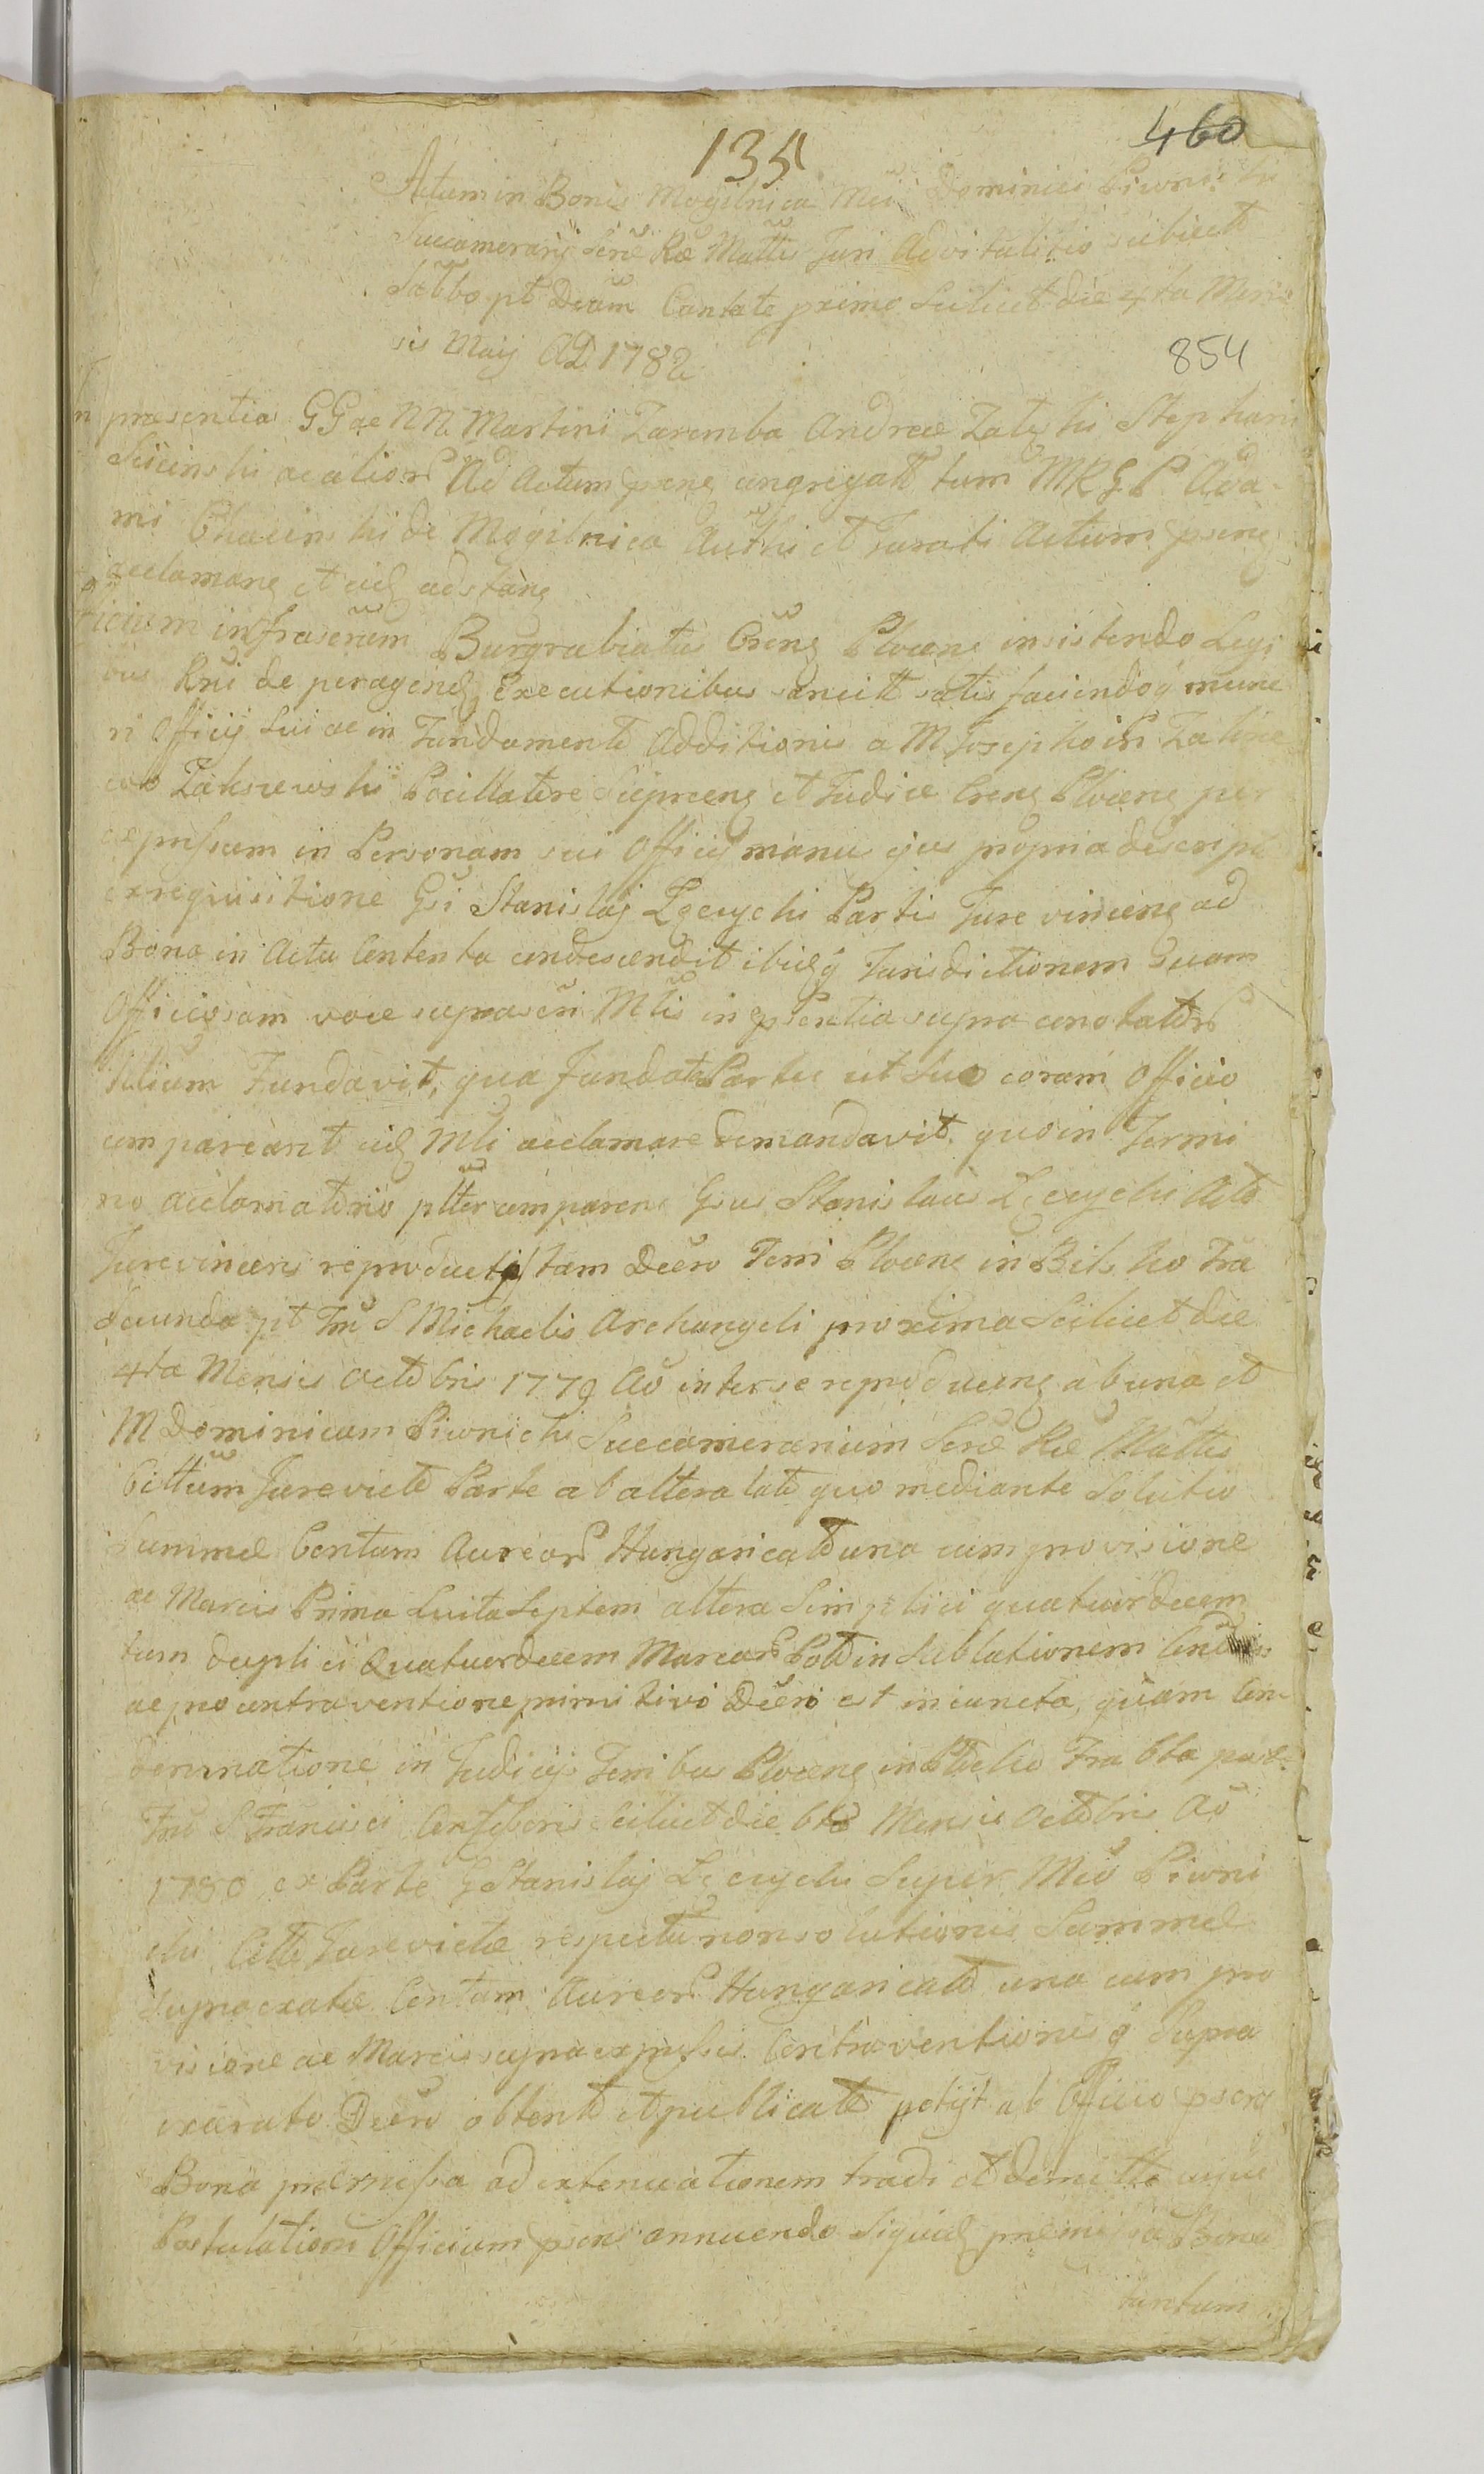 460
135
Actum in Bonis Mogilnica Mci Dominici Piwnicki
Succamerarij Sere Rae Mattis Juri Advitalitio subiect
Sabbo pt Dcam Cantate primo Scilicet die 4ta Men
sis Maij AD 1782
854
n praesentia GG ac NN Martini Zaremba Andreae Zaleski Stephani
ac alior Ad Actum psens congregatt tum MRGP Ada-
mi de Mogilnica Authi et Jurati Actum psens
acclamans et eid adstans
icium infrascrum Burgrabiatus Csens Plocens insistendo Legi
bus Rni de peragend Executionibus sancitt satis faciendoq mune
ri Officij Sui ac in Fundamento Additionis a M Josepho in
Zakrzewski Pocillatore et Judice Csens Plocens per
expressum in Personam sui Officij manu ejus propria descript
ex requisitione Gsi Stanislaj Łęcycki Partis Jure vincens ad
Bona in Actu Contenta condescendit ibidq Jurisdictionem Suam
Officiosam voce suprascri Mlis in psentia supra conotator
Nlium Fundavit, qua fundata Partes ut Suo coram Officio
compareant eid Mli acclamare demandavit. quo in Termi
no acclamatorio plter comparens Gsus Stanislaus Łęcycki Actor
Jurevincens reproducto tam Decro Terri Plocens in Bielsko Fra
secunda pt Fm S Michaelis Archangeli proxima Scilicet die
4ta Mensis Octobris 1779 Ao inter se reproducens ab una et
M Dominicum Piwnicki Succamerarium Sere Rae Mattis
Cittum Jurevicto Parte ab altera lato quo mediante Solutio
Summae Centum Aureor Hungaricalium una cum provisione
ac Marcis Prima Luita Septem altera Simplici quatuordecem
tum duplici Quatuordecem Marcar Pol in Sublationem
ac pro contraventione primitivi Decri est iniuncta, quam Con-
demnatione in Judicijs Terribus Plocens in Płocko Fra 6ta post
Fm S Francisci Confessoris Scilicet die 6ta Mensis Octobris Ao
1780 ex Parte G Stanislaj Łęcycki Super Mco Piwni
cki Citto Jurevictae respectu non solutionis Summae
supra exatae Centum Aureor Hungarical una cum pro
visione ac Marcis supra expressis Contraventionis q Supra
exarato Decro obtento et publicato petijt ab Officio psens
Bona praemissa ad extenuationem tradi et dimitti cujus
Postulationi Officium psens annuendo Siquid praemissa Bona
tantum